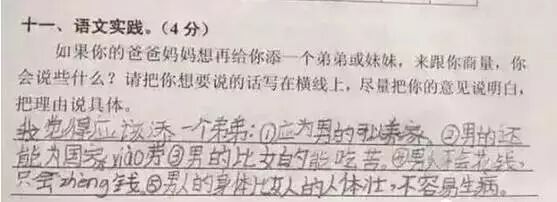 十一、语文实践。(4分)
如果你的爸爸妈妈想再给你添一个弟弟或妹妹，来跟你商量，你
会说些什么？请把你想要说的话写在横线上，尽量把你的意见说明白，
把理由说具体。
我觉得应该添一个弟弟：①应为男的可以养家，②男的还
能为国家xiào劳③男的比女的能吃苦。④男人不会花钱，
只会zhèng钱。⑤男人的身体比女人的人体壮，不容易生病。